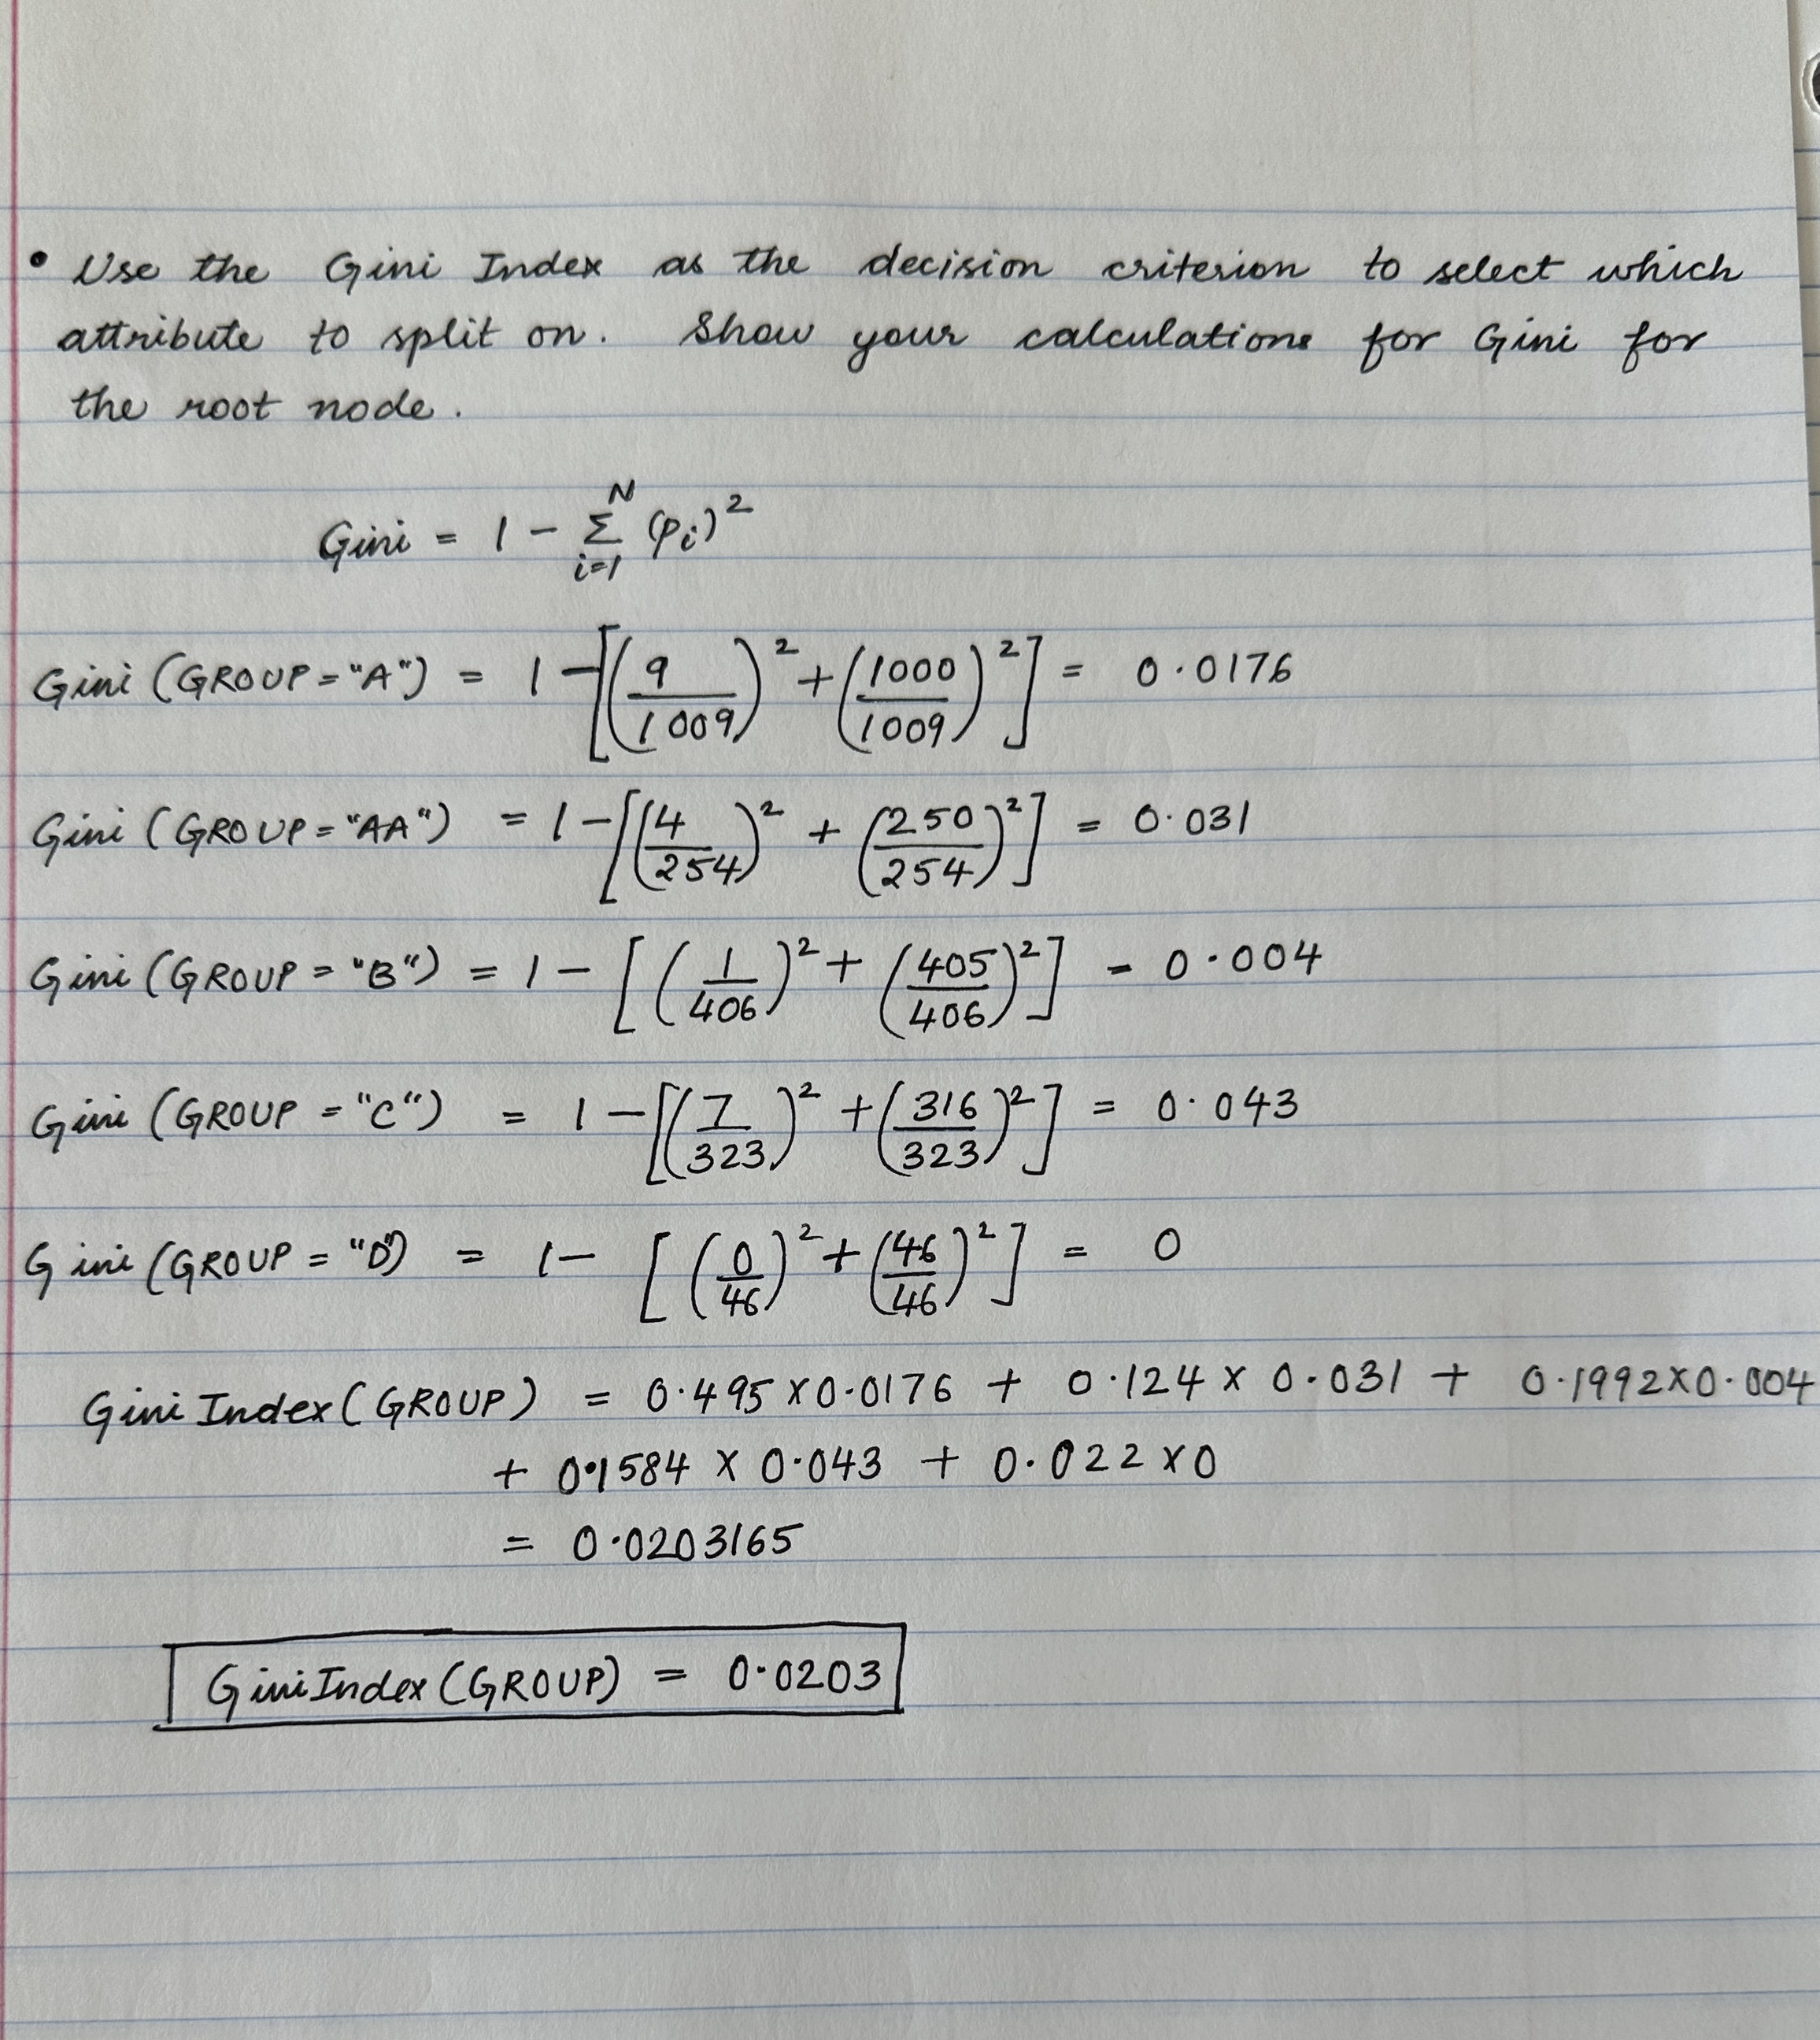 • Use the Gini Index as the decision criterion to select which
attribute to split on. Show your calculations for Gini for
the root node.
Gini = 1 - Σ_{i=1}^{N} (pi)²
Gini (GROUP = "A") = 1 - [(9/1009)² + (1000/1009)²] = 0.0176
Gini (GROUP = "AA") = 1 - [(4/254)² + (250/254)²] = 0.031
Gini (GROUP = "B") = 1 - [(1/406)² + (405/406)²] = 0.004
Gini (GROUP = "C") = 1 - [(7/323)² + (316/323)²] = 0.043
Gini (GROUP = "D") = 1 - [(0/46)² + (46/46)²] = 0
Gini Index (GROUP) = 0.495 x 0.0176 + 0.124 x 0.031 + 0.1992 x 0.004
+ 0.1584 x 0.043 + 0.022 x 0
= 0.0203165
Gini Index (GROUP) = 0.0203